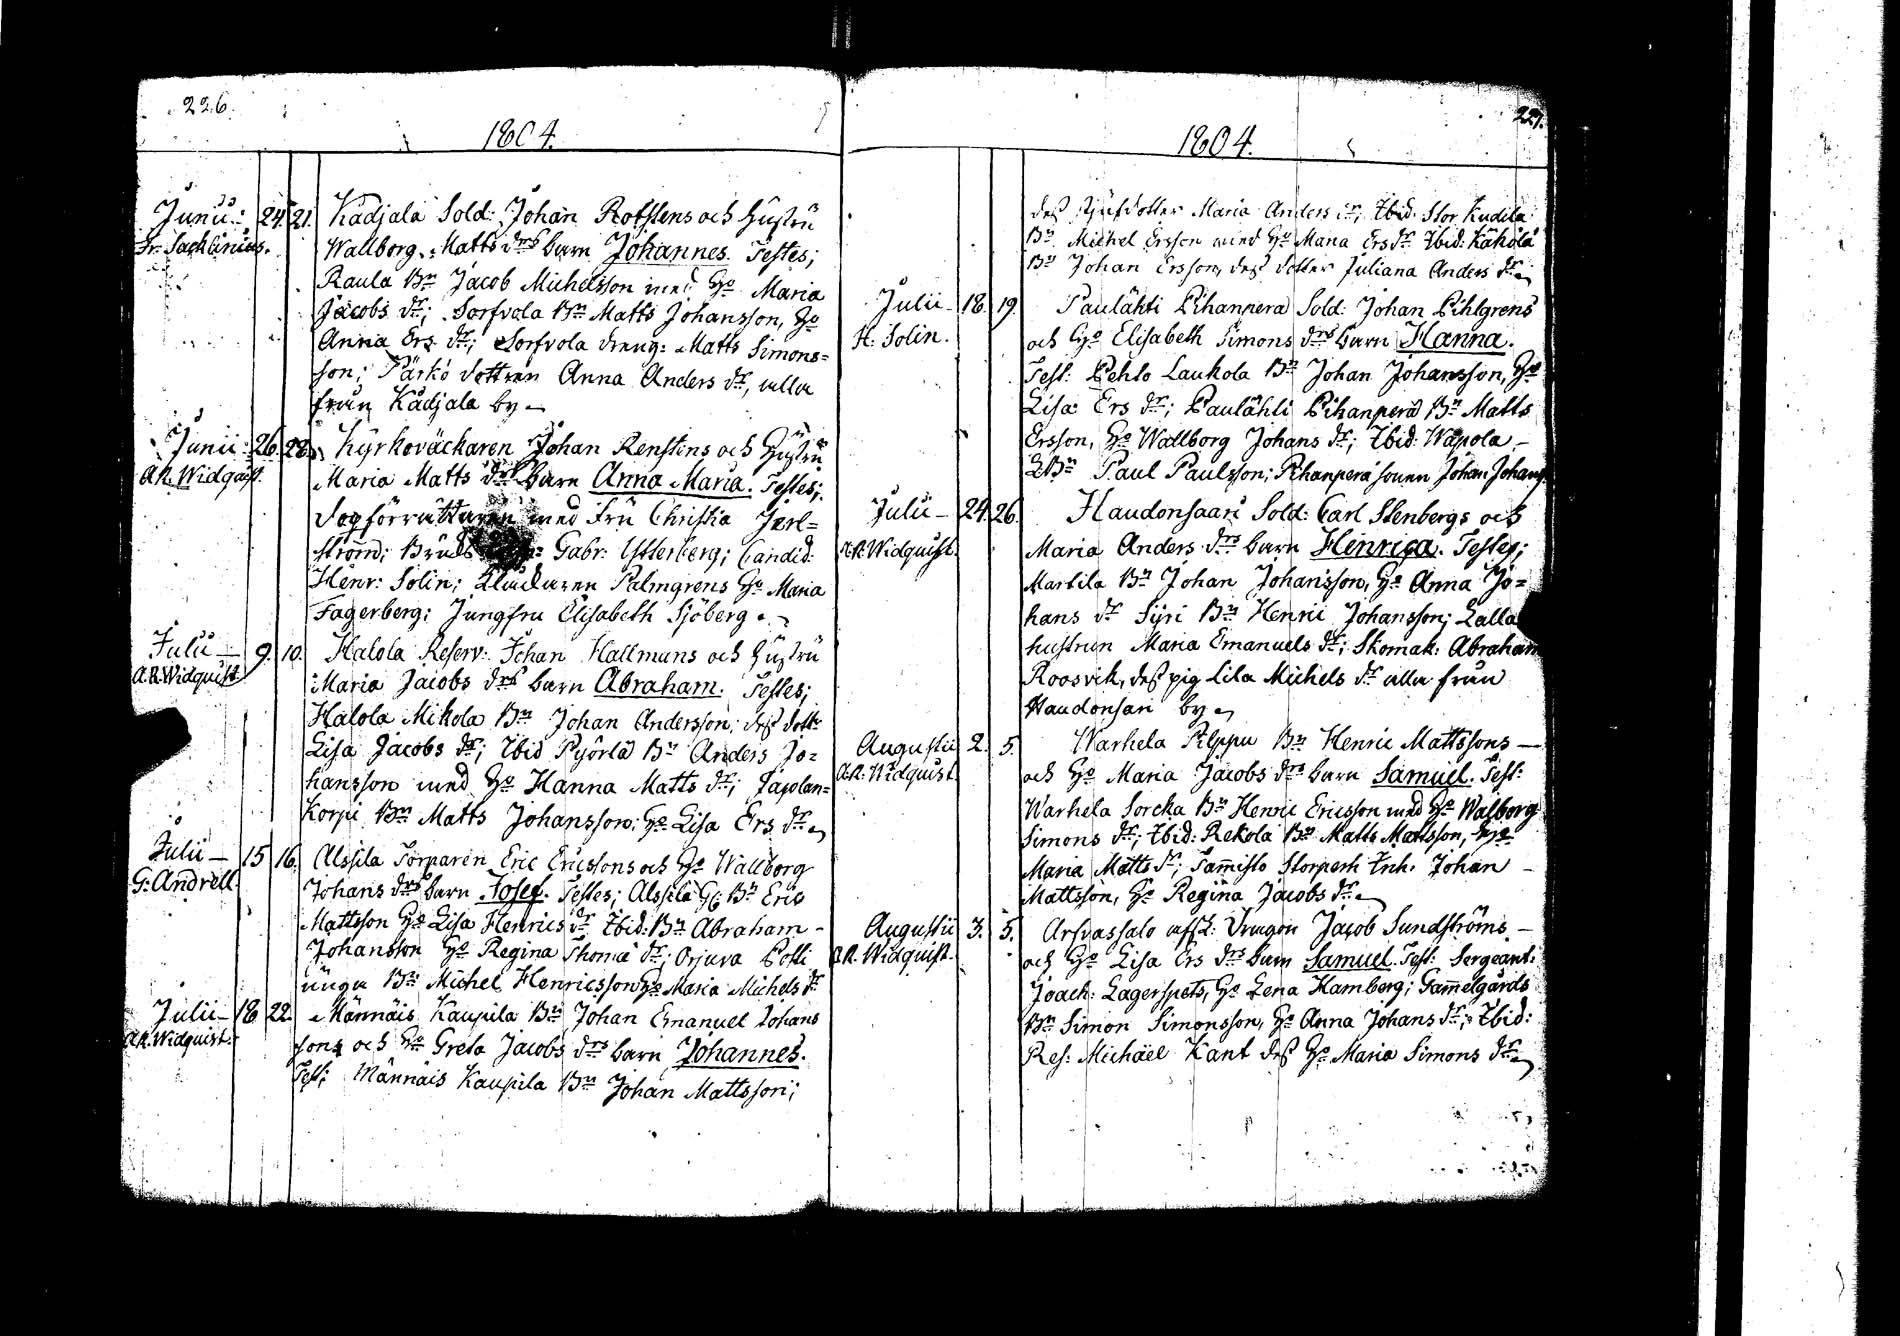 226.
1804.
Junii: 24. 21. Kädjala Sold: Johan Rotstens och Hustru
Fr. Sacklinius. Wallborg Matts drs barn Johannes. Testes;
Raula Bn Jacob Michelsson med Ho Maria
Jacobs dr; Sorfvola Bn Matts Johansson, Ho
Anna Ers dr; Sorfvola dreng: Matts Simons=
son; Pärkö dottren Anna Anders dr, alla
från Kädjala by
Junii: 26. 28. Kyrkoväckaren Johan Renstens och Hustru
A.R. Widquist. Maria Matts drs barn Anna Maria. Testes;
Fogförrättaren med Fru Christia Jerl=
ström; Gabr: Ytterberg; Candid:
Henr: Solin; Klockaren Palmgrens Ho Maria
Fagerberg; Jungfru Elisabeth Sjöberg.
Julii 9. 10. Halola Reserv: Johan Hallmans och Hustru
A.R. Widquist Maria Jacobs drs barn Abraham. Testes;
Halola Mikola Bn Johan Andersson; dess dottr
Lisa Jacobs dr; Ibid Pyörlä Bn Anders Jo=
hansson med Ho Hanna Matts dr; Tapolan=
Korpi Bn Matts Johansson; Ho Lisa Ers dr
Julii 15 16. Alssila Torparen Eric Ericssons och Ho Wallborg
G: Andrell Johans drs barn Josef. Testes; Alssila Bn Eric
Mattsson Ho Lisa Henrics dr Ibid: Bn Abraham
Johansson Ho Regina Thomæ dr; Orjura Potti
unga Bn Michel Henricsson Ho Maria Michels dr
Julii 18 22. Männäis Kaupila Bn Johan Emanuel Johans
A.R. Widquist. sons och Ho Greta Jacobs drs barn Johannes.
Test; Männäis Kaupila Bn Johan Mattsson;
227.
1804.
dess styfdotter Maria Anders dr; Ibid: Stor Kudila
Bn Michel Ersson med Ho Maria Ers dr Ibid: Kähölä
Bn Johan Ersson, dess dotter Juliana Anders dr
Julii 18. 19. Paulähti Pihanperä Sold: Johan Pihlgrens
H: Solin. och Ho Elisabeth Simons drs barn Hanna.
Test: Pehto Laukola Bn Johan Johansson, Ho
Lisa Ers dr; Paulähti Pihanperä Bn Matts
Ersson, Ho Wallborg Johans dr; Ibid: Wapola
Bn Paul Paulsson; Pihanperä sonen Johan Johanss.
Julii 24. 26. Haudonsaari Sold: Carl Stenbergs och
A.R. Widquist. Maria Anders drs barn Henrica. Testes;
Martila Bn Johan Johansson, Ho Anna Jo=
hans dr Syri Bn Henric Johansson; Lalla
hustrun Maria Emanuels dr; Skomak: Abraham
Roosvik, dess pig Lisa Michels dr alla från
Haudonsari by
Augustii 2. 5. Warhela Pilppu Bn Henric Mattssons
A.R. Widquist. och Ho Maria Jacobs drs barn Samuel. Test:
Warhela Sorcka Bn Henric Ericsson med Ho Walborg
Simons dr; Ibid: Rekola Bn Matts Mattsson, Ho
Maria Matts dr; Tammisto Storperh Inh. Johan
Mattsson, Ho Regina Jacobs dr
Augustii 3. 5. Arfvassalo affsk: Dragon Jacob Sundströms
A.R. Widquist. och Ho Lisa Ers drs barn Samuel. Test: Sergeant:
Joach: Lagerspets, Ho Lena Hamberg; Gammelgårds
Bn Simon Simonsson, Ho Anna Johans dr; Ibid:
Res: Michäel Kant dess Ho Maria Simons dr